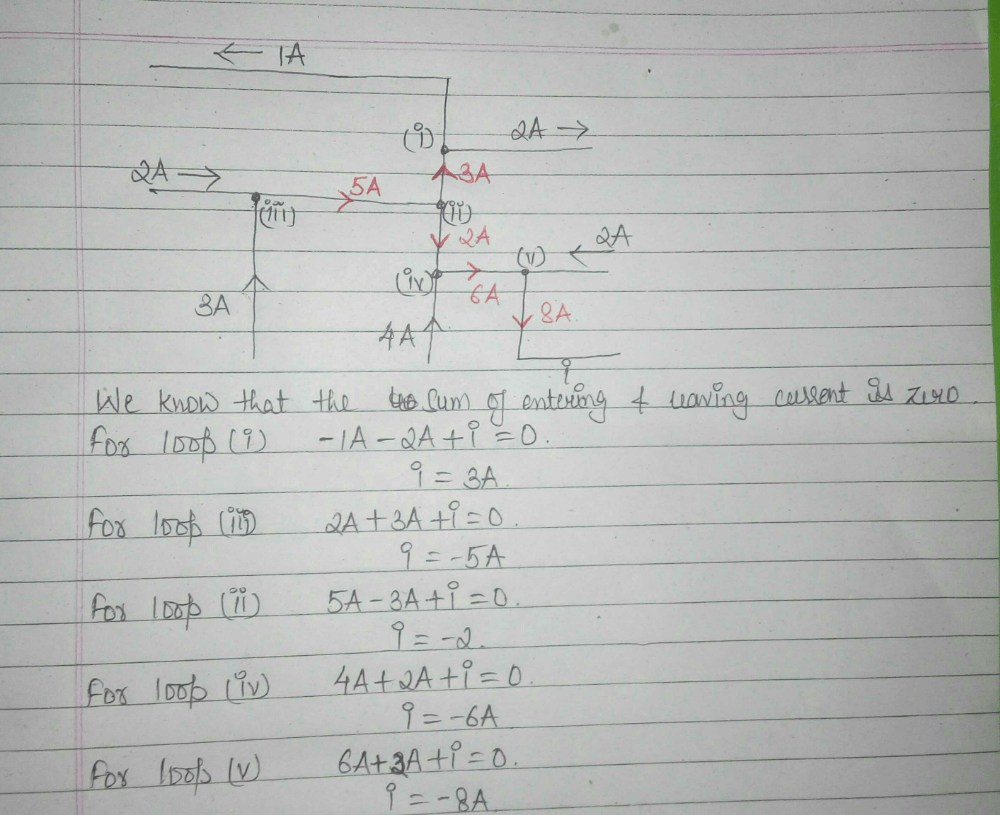 ← 1A
(i)
2A →
2A →
5A
3A
(iii)
(ii)
2A
2A
←
(v)
(iv)
6A
3A
8A
4A
i
We know that the sum of entering & leaving current is zero.
For loop (i) -1A - 2A + i = 0.
i = 3A
For loop (iii) 2A + 3A + i = 0.
i = -5A
For loop (ii) 5A - 3A + i = 0.
i = -2.
For loop (iv) 4A + 2A + i = 0.
i = -6A
For loop (v) 6A + 2A + i = 0.
i = -8A